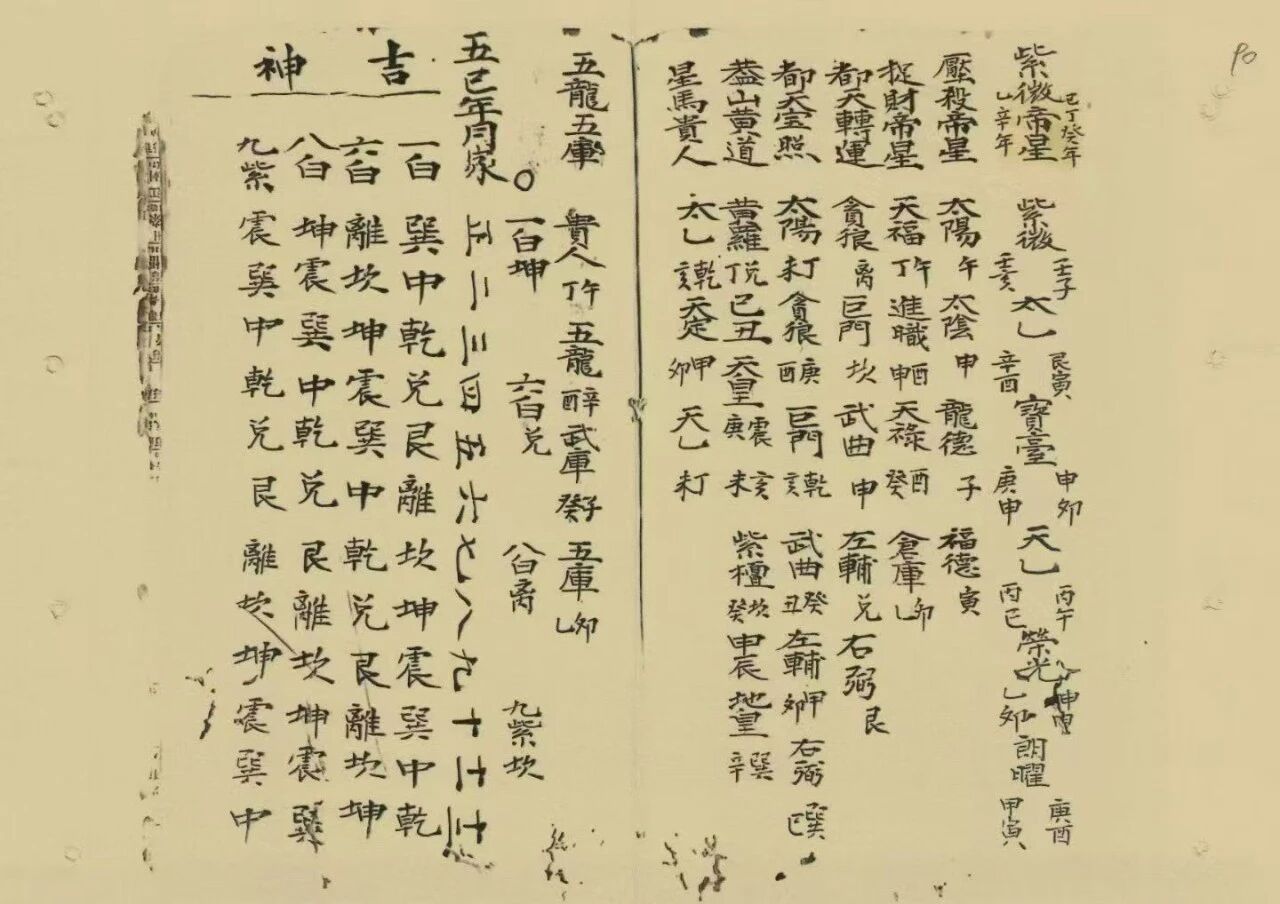 90
紫微帝星 己丁癸年 乙辛年 紫微 壬子 壬亥 太乙 艮寅 辛酉 寶臺 申卯 庚申 天乙 丙午 丙巳 榮光 乙卯 朗曜 庚酉 甲寅
壓殺帝星 太陽 午 太陰 申 龍德 子 福德 寅
捉財帝星 天福 丁午 進職 申酉 天祿 癸酉 倉庫 乙卯
都天轉運 貪狼 离 巨門 坎 武曲 申 左輔 兑 右弼 艮
都天宝照 太陽 未丁 貪狼 酉庚 巨門 亥乾 武曲 丑癸 左輔 卯甲 右弼 巳巽
蓋山黄道 黄羅 丁兑 己丑 天皇 庚震 未亥 紫檀 癸坎 申辰 地皇 辛巽
星馬貴人 太乙 亥乾 天定 卯甲 天乙 未丁
五龍五庫 貴人 丁午 五龍 酉辛 武庫 癸子 五庫 乙卯
〇 一白坤 六白兑 八白离 九紫坎
五巳年月家 正 二 三 四 五 六 七 八 九 十 十一 十二
吉神
一白 巽 中 乾 兑 艮 離 坎 坤 震 巽 中 乾
六白 離 坎 坤 震 巽 中 乾 兑 艮 離 坎 坤
八白 坤 震 巽 中 乾 兑 艮 離 坎 坤 震 巽
九紫 震 巽 中 乾 兑 艮 離 坎 坤 震 巽 中